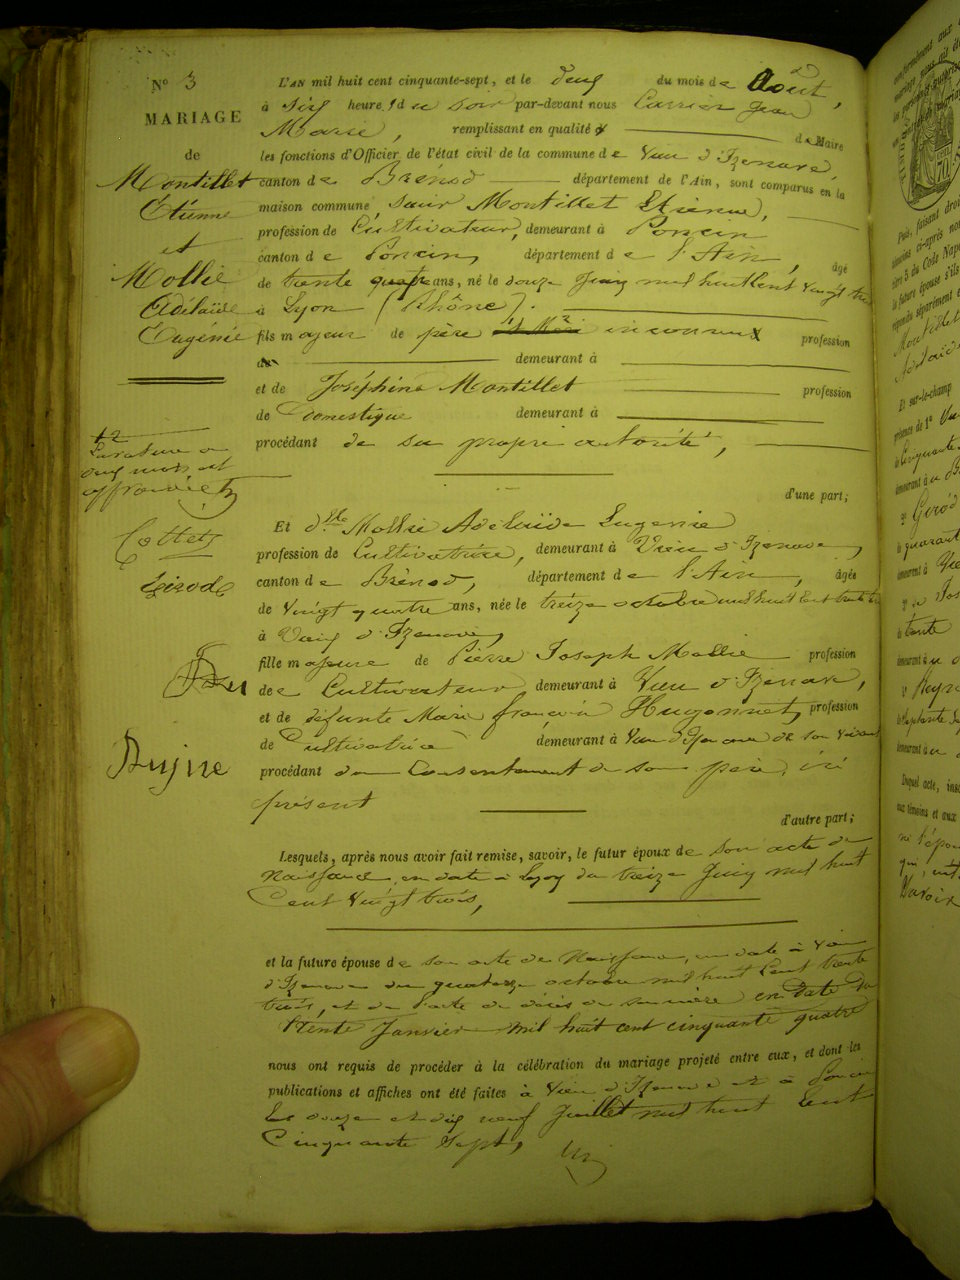 N° 3
MARIAGE
de
Montillet
Étienne
et
Mollie
Adélaïde
Eugénie
L'AN mil huit cent cinquante-sept, et le deux du mois de Août,
à six heures du soir par-devant nous Carrier Jean
Marie, remplissant en qualité de Maire
les fonctions d'Officier de l'état civil de la commune de Vieu d'Izenave,
canton de Brénod département de l'Ain, sont comparus en la
maison commune, sieur Montillet Etienne,
profession de Cultivateur, demeurant à Poncin
canton de Poncin, département de l'Ain, âgé
de trente quatre ans, né le douze Juin mil huit cent vingt trois
à Lyon (Rhône).
fils majeur de père inconnu profession
de demeurant à
et de Joséphine Montillet profession
de Domestique demeurant à
procédant de sa propre autorité,
d'une part;
deux mots
Cottet
Girod
Reyne
Et dlle Mollie Adélaïde Eugénie
profession de Cultivatrice, demeurant à Vieu d'Izenave,
canton de Brénod, département de l'Ain, âgée
de vingt quatre ans, née le treize octobre mil huit cent trente
à Vieu d'Izenave,
fille majeure de Pierre Joseph Mollie profession
de Cultivateur demeurant à Vieu d'Izenave,
et de défunte Marie Hugonnet, profession
de Cultivatrice demeurant à Vieu d'Izenave de son vivant
procédant du Consentement de son père, ici
présent
d'autre part;
Lesquels, après nous avoir fait remise, savoir, le futur époux de son acte de
Naissance, en date à Lyon du treize Juin mil huit
Cent vingt trois,
et la future épouse de son acte de Naissance, en date à Vieu
d'Izenave du quatorze octobre mil huit Cent trente
trois, et de l'acte de décès de sa mère en date du
trente Janvier mil huit cent cinquante quatre
nous ont requis de procéder à la célébration du mariage projeté entre eux, et dont les
publications et affiches ont été faites à Vieu d'Izenave et à Poncin
les douze et dix neuf Juillet mil huit Cent
Cinquante Sept,